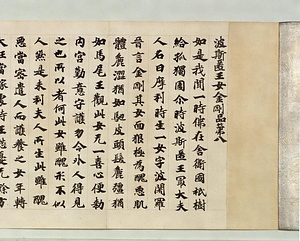 波斯匿王女金剛品第八
如是我聞一時佛在舍衛國祇樹
給孤獨園尒時波斯匿王最大夫
人名曰摩利時生一女字波闍羅
晉言金剛其女面貌極為醜惡肌
體麁澁猶如駝皮頭髮麁強猶
如馬尾王觀此女无一喜心便勑
內宮勤意守護勿令外人得見
之也所以者何此女雖醜形不似
人然是末利夫人所生此雖醜
惡當密遣人而護養之女年轉